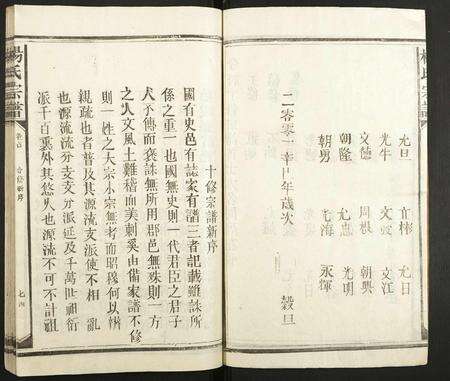 元旦 自彬 元日
光牛 文
文德 周根 文江
朝隆 尤 朝興
朝男 光明
海 永輝
二零零一年巳年歲次 穀旦
十修宗譜新序
國有史邑有誌家有譜三者記載雖殊所
係之重一也國無史則一代君臣之君子
不傳而褒誅無所用郡邑無殊則一方
之人文風土雖稽而美刺奚由備家譜不修
則一姓之大宗小宗無考而昭穆何以辨
親疏也者普及其源流支派使不相亂
也源流流分支支分派延及千萬世祖衍
派千百裏外其悠久也源流不可不計祖
楊氏宗譜
合修新序
七四
楊氏宗譜